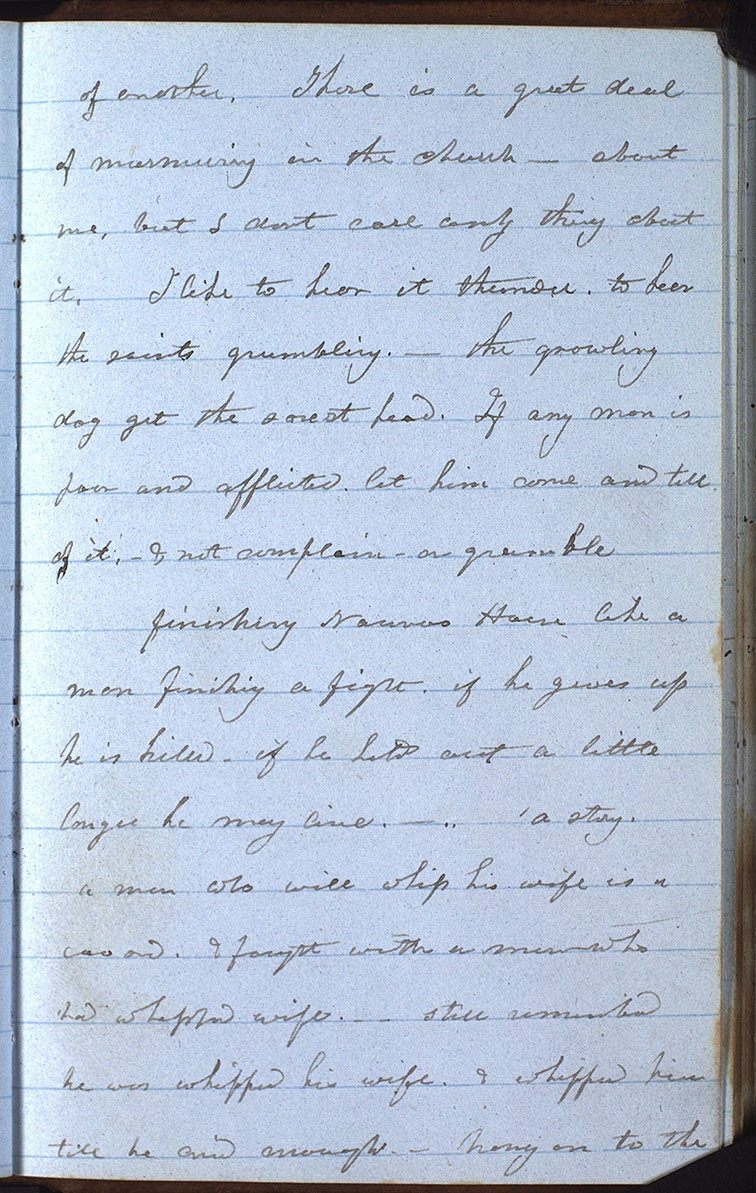 of another. There is a great deal
of murmuring in the church — about
me, but I dont care any thing about
it. I like to hear it thunder. to hear
the saints grumbling. — the growling
dog get the sorest head. If any man is
poor and afflicted. let him come and tell
of it. — & not complain — or grumble
finishing Nauvoo House like a
man finishig a fight. if he gives up
he is killed — if he holds out a little
longer he may live. — .. a story.
a man who will whip his wife is a
coward. I fought with a man who
had whipped wife. — — still remembed
he was whipped his wife. & whipped him
till he said enough. — hang on to the